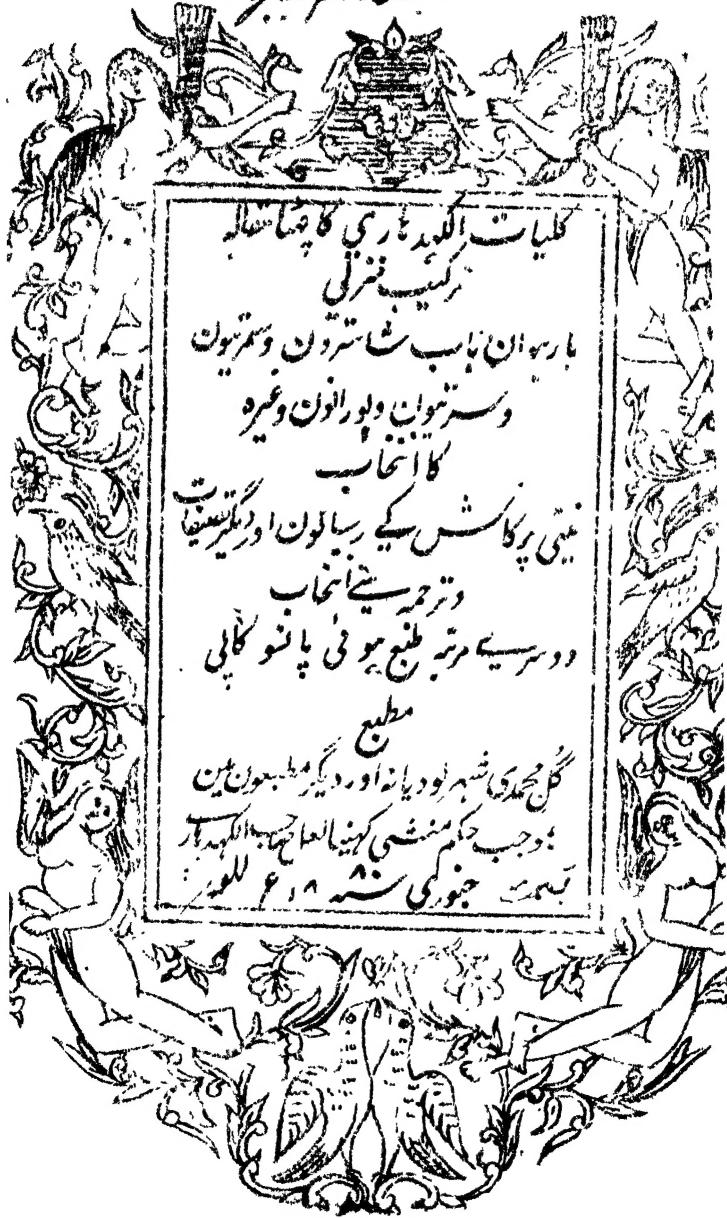 کلیات الکھدہاری کا چھٹا مقالہ
ترکیب منزلی
بارہوان باب شاسترون و سمرتیون
و سرتیوان و پورانون وغیرہ
کا انتخاب
نیتی پرکاش کے رسالون اور دیگر تصنیفات
و ترجمہ سے انتخاب
دوسرے مرتبہ طبع ہوئی پانسو کاپی
مطبع
گل محمدی شہر لودیانہ اور دیگر مطبعون مین
بوجب حکم منشی کہنیالعل صاحب الکھدہاری
جنوری سنہ ۱۸۸۰ع